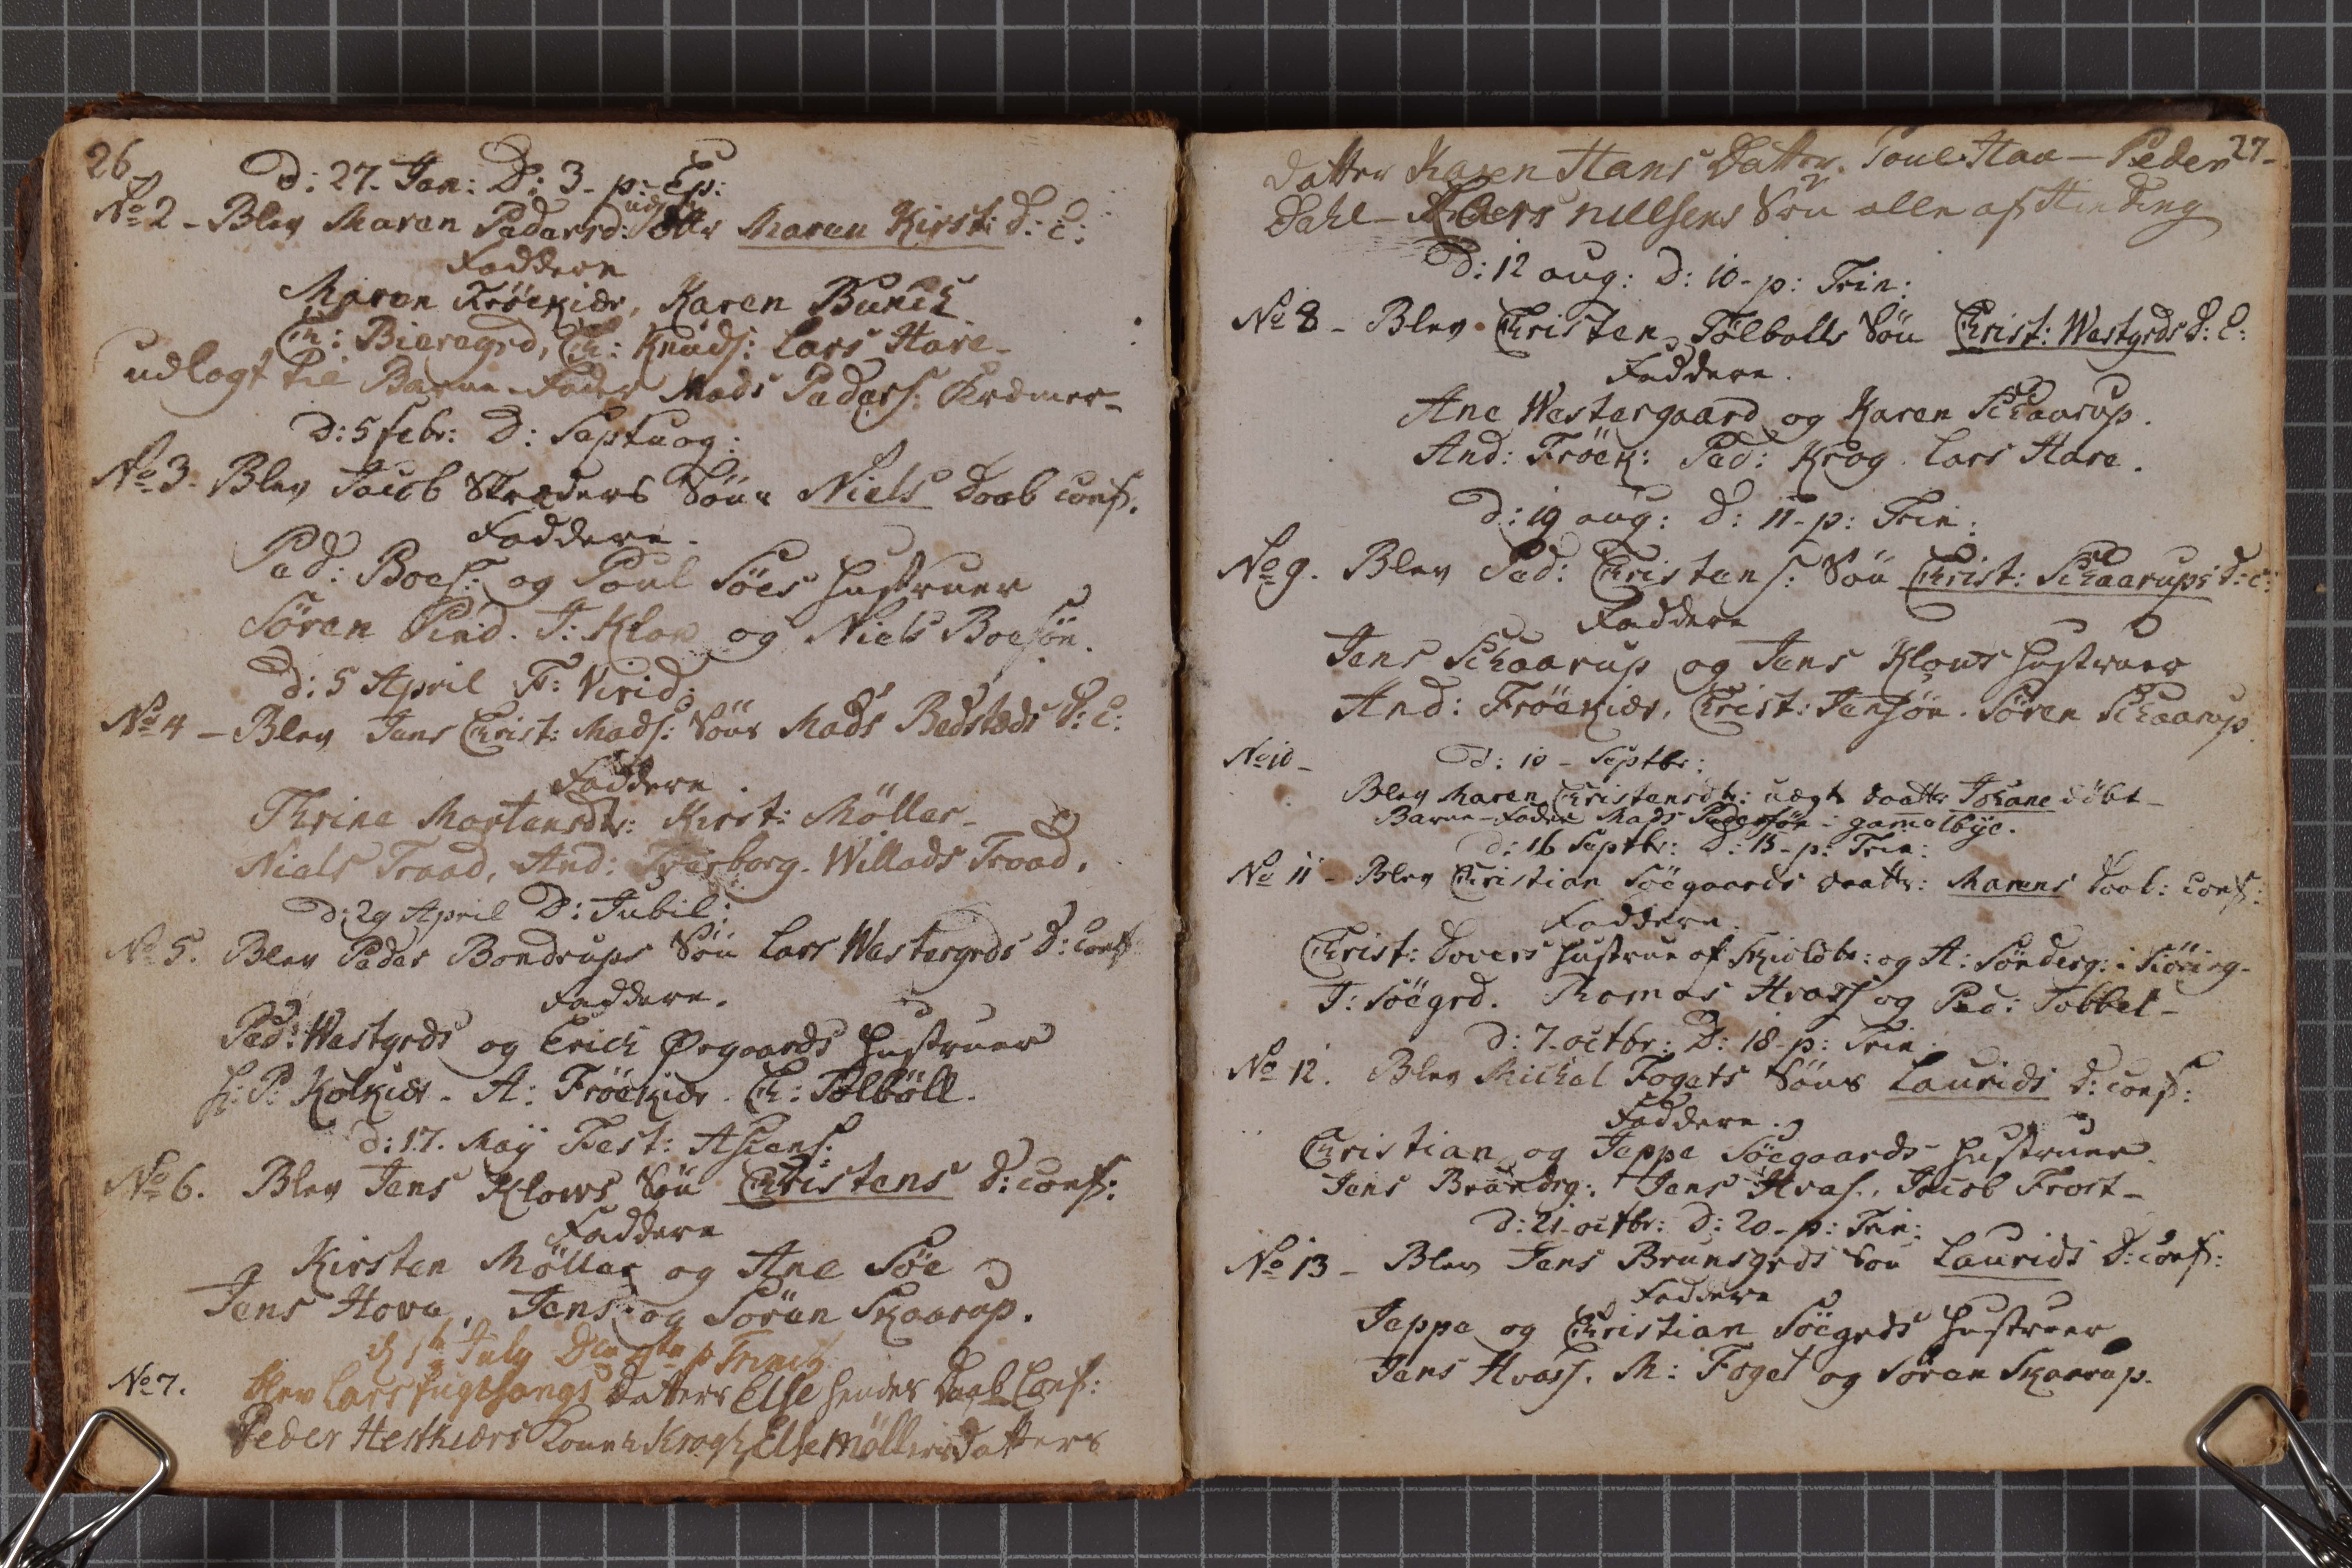 26
D: 27. Jan: D: 3. p: Ep:
No 2 - Blev Maren Pedersd: uægte Dttr Maren Kirst: D: C:
Faddere
Maren Fröekiær, Karen Bunch
Ch: Bieregrd, Ch: Knuds: Lars Hare -
udlagt til Barne-Fader Mads Peders: Kræmer -
D: 5 febr: D: Septuag:
No 3. Blev Jacob Skræders Söns Niels Daab conf.
Faddere.
Ped: Boes: og Poul Söes Hustruer
Sören Pind. J: Klow og Niels Boesön.
D: 5 April F: Virid:
No 4 - Blev Jens Christ: Mads: Söns Mads Bedsteds D: C:
Faddere.
Thrine Mortensdtr: Kirst: Möller -
Niels Traad, And: Tværborg. Willads Troad.
D: 29 April D: Jubil:
No 5. Blev Peder Bondrups Sön Lars Westergrds D: Conf
Faddere.
Ped: Westgrds og Erich Ørgaards Hustruer
H: P: Kolkiær. A: Fröekiær. Ch: Tolböll.
d: 17. Maÿ Fest: Ascens:
No 6. Blev Jens Klows Sön Christens D: conf:
Faddere
Kirsten Möller og Ane Söe
Jens Hove, Jens og Sören Skaarup.
d 1te July Dca 4ta p Trinit
No 7. blev Lars fuglsangs Datters Else hendes Daab Conf:
Peder Hestkiærs Kone Krogh Else Möllers Datters
27 -
Datter Karen Hans Datter. Poul Hau - Peder
Dahl - Anders Nielsens Sön alle af Hinding
D: 12 aug: D: 10 - p: Trin:
No 8 - Blev Christen Tölbolls Sön Christ: Westgrds D: C:
Faddere.
Ane Westergaard og Karen Schaarup.
And: Fröek: Ped: Krog. Lars Hare.
D: 19 aug: D: 11 - p: Trin:
No 9. Blev Ped: Christens: Sön Christ: Schaarups D: C:
Faddere
Jens Schaarup og Jens Klows Hustruer
And: Fröekiær, Christ: Jensön. Sören Schaarup.
No 10 - D: 10 - Septbr:
Blev Maren Christensdtr: uægte Daatter Johane döbt -
Barne-Fader Mads Pedersön i gam̄elbÿe.
d: 16 Septbr: D: 15 - p: Trin:
No 11 - Blev Christian Söegaards Daatter: Marens Daab: Conf:
Faddere.
Christ: Dovers Hustrue af Skioldb: og A: Sönderg: i Siöring -
J: Söegrd. Thomas Hvass og Ped: Tobbel -
d: 7. octbr: D: 18 - p: Trin:
No 12. Blev Michel Fogets Söns Laurids D: conf:
Faddere.
Christian og Jeppe Söegaards - Hustruer
Jens Brundsg: Jens Hvas., Jacob Frost -
D: 21. octbr: D: 20 - p: Trin:
No 13 - Blev Jens Brunsgrds Sön Laurids D: conf:
Faddere
Jeppe og Christian Söegrds Hustruer
Jens Hvass. M: Foget og Sören Skaarup.